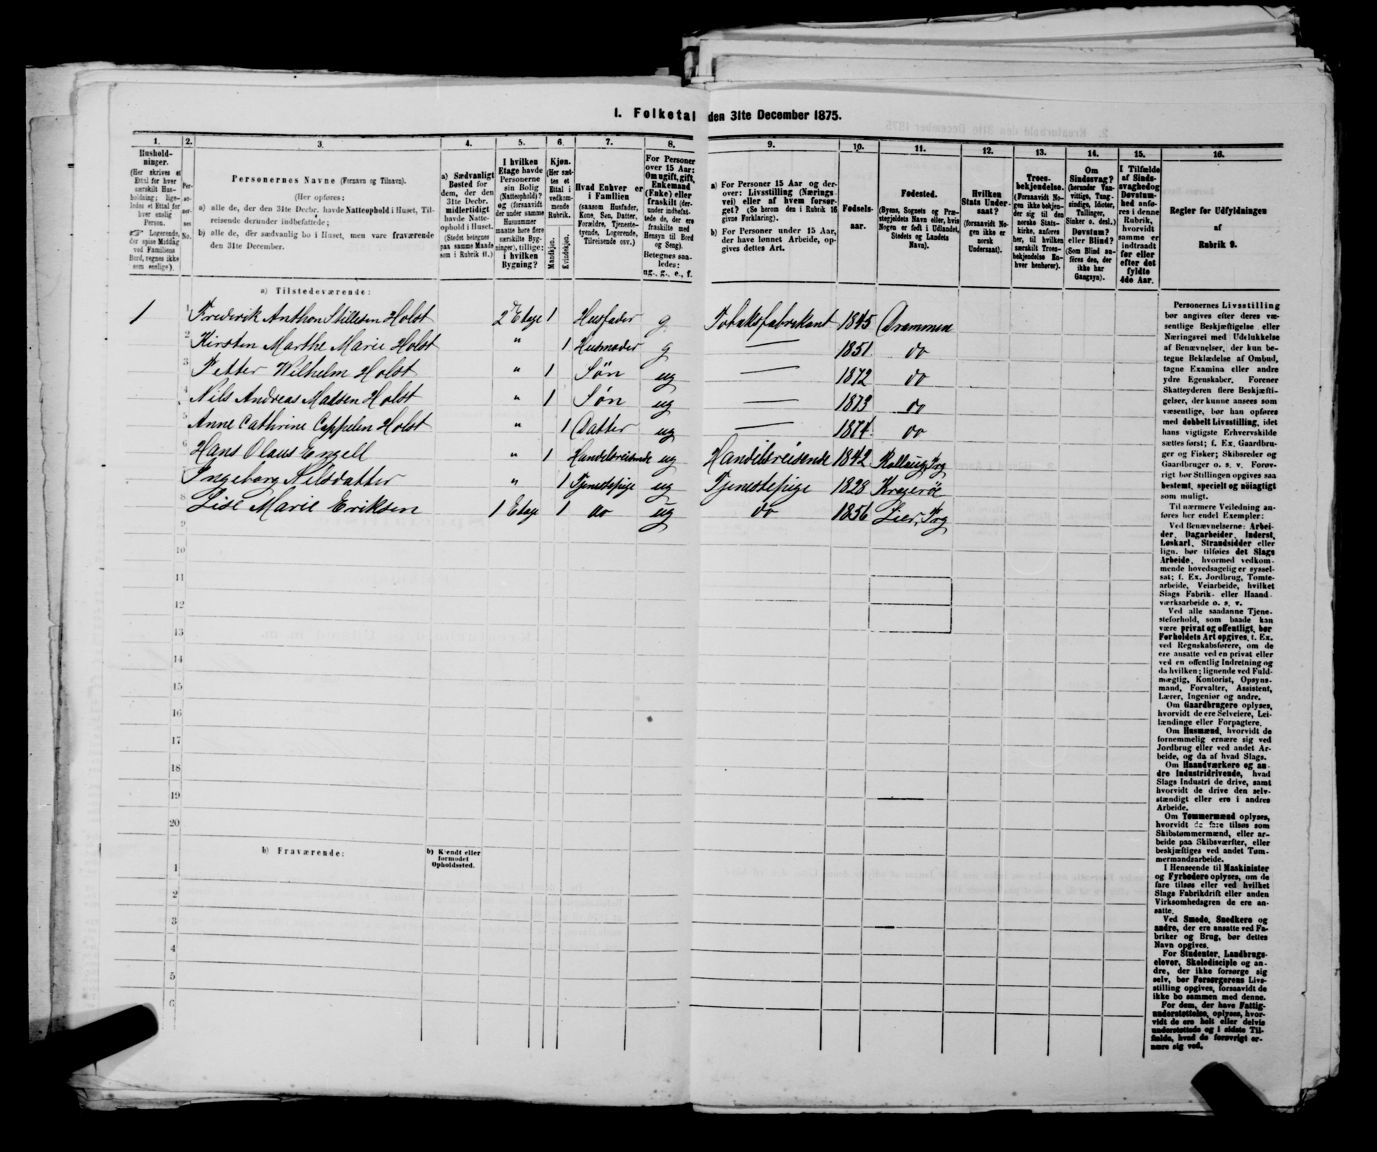 1. Folketal den 31te December 1875.
1. 2. 3. 4. 5. 6. 7. 8. 9. 10. 11. 12. 13. 14. 15. 16.
Hushold-
ninger.
(Her skrives et
Ettal for hver
særskilt Hus-
holdning; lige-
ledes et Ettal for
hver enslig
Person.
Logerende,
der spise Middag
ved Familiens
Bord, regnes ikke
som enslige).
Per-
so-
ner-
nes
No.
Personernes Navne (Fornavn og Tilnavn).
(Her opføres:
a) alle de, der den 31te Decbr. havde Natteophold i Huset, Til-
reisende derunder indbefattede;
b) alle de, der sædvanlig bo i Huset, men vare fraværende
den 31te December.
a) Sædvanligt
Bosted for
dem, der den
31te Decbr.
midlertidigt
havde Natte-
ophold i Huset.
(Stedet betegnes
paa samme Maade
som i Rubrik 11.)
I hvilken
Etage havde
Personerne
sin Bolig
(Natteophold)?
og (forsaavidt
der under samme
Husnummer
maatte høre flere
særskilte Byg-
ninger), tillige:
i hvilken
Bygning?
Kjøn.
(Her sæt-
tes et
Ettal i
vedkom-
mende
Rubrik.
Mandkjøn.
Kvindekjøn.
Hvad Enhver er
i Familien
(saasom Husfader,
Kone, Søn, Datter,
Forældre, Tjeneste-
tyende, Logerende,
Tilreisende osv.)
For Personer
over 15 Aar:
Om ugift, gift,
Enkemand
(Enke) eller
fraskilt (der-
under indbefat-
tede de, der ere
fraskilte med
Hensyn til Bord
og Seng).
Betegnes saa-
ledes:
ug., g., e., f.
a) For Personer 15 Aar og der-
over: Livsstilling (Nærings-
vei) eller af hvem forsør-
get? (Se herom den i Rubrik 16
givne Forklaring).
b) For Personer under 15 Aar,
der have lønnet Arbeide, op-
gives dettes Art.
Fødsels-
aar.
Fødested.
(Byens, Sognets og Præ-
stegjeldets Navn eller, hvis
Nogen er født i Udlandet,
Stedets og Landets
Navn).
Hvilken
Stats Under-
saat?
(forsaavidt No-
gen ikke er
norsk
Undersaat).
Troes-
bekjendelse.
(Forsaavidt No-
gen ikke bekjen-
der sig til den
norske Stats-
kirke, anføres
her, til hvilken
særskilt Troes-
bekjendelse En-
hver henhører).
Om
Sindssvag?
(herunder Van-
vittige, Tung-
sindige, Idioter,
Tullinger,
Sinker o. desl.)
Døvstum?
eller Blind?
(Som Blind an-
føres den, der
ikke har
Gangsyn).
I Tilfælde
af Sinds-
svaghed og
Døvstum-
hed anfø-
res i denne
Rubrik,
hvorvidt
samme er
indtraadt
før eller
efter det
fyldte
4de Aar.
Regler for Udfyldningen
af
Rubrik 9.
a) Tilstedeværende:
1 1 Frederik Anthon Stillesen Holst 2 Etage 1 Husfader g Tobaksfabrikant 1845 Drammen
2 Kirsten Marthe Marie Holst " 1 Husmoder g — 1851 do
3 Petter Wilhelm Holst " 1 Søn ug — 1872 do
4 Nils Andreas Madsen Holst " 1 Søn ug — 1873 do
5 Anne Cathrine Cappelen Holst " 1 Datter ug — 1874 do
6 Hans Olaus Engell " 1 Handelsreisende ug Handelsreisende 1842 Prg
7 Ingeborg Nilsdatter " 1 Tjenestepige ug Tjenestepige 1828 Kragerøe
8 Lise Marie Eriksen 1 Etage 1 do ug do 1856 Lier, Prg
9
10
11
12
13
14
15
16
17
18
19
20
b) Fraværende:
b) Kjendt eller
formodet
Opholdssted.
1
2
3
4
5
6
Personernes Livsstilling
bør angives efter deres væ-
sentlige Beskjæftigelse eller
Næringsvei med Udelukkelse
af Benævnelser, der kun be-
tegne Beklædelse af Ombud,
tagne Examina eller andre
ydre Egenskaber. Forener
Skatteyderen flere Beskjæfti-
gelser, der kunne ansees som
væsentlige, bør han opføres
med dobbelt Livsstilling, idet
hans vigtigste Erhvervskilde
sættes først; f. Ex. Gaardbru-
ger og Fisker; Skibsreder og
Gaardbruger o. s. v. Forøv-
rigt bør Stillingen opgives saa
bestemt, specielt og nøiagtigt
som muligt.
Til nærmere Veiledning an-
føres her endel Exempler:
Ved Benævnelserne: Arbei-
der, Dagarbeider, Inderst,
Løskarl, Strandsidder eller
lign. bør tilføies det Slags
Arbeide, hvormed vedkom-
mende hovedsagelig er syssel-
sat; f. Ex. Jordbrug, Tomte-
arbeide, Veiarbeide, hvilket
Slags Fabrik- eller Haand-
værksarbeide o. s. v.
Ved alle saadanne Tjene-
steforhold, som baade kan
være privat og offentligt, bør
Forholdets Art opgives, f. Ex.
ved Regnskabsførere, om de
ere ansatte ved en privat eller
ved en offentlig Indretning og
da hvilken; lignende ved Fuld-
mægtig, Kontorist, Opsyns-
mand, Forvalter, Assistent,
Lærer, Ingeniør og andre.
Om Gaardbrugere oplyses,
hvorvidt de ere Selveiere, Lei-
lændinge eller Forpagtere.
Om Husmænd, hvorvidt de
fornemmelig ernære sig ved
Jordbrug eller ved andet Ar-
beide, og da af hvad Slags.
Om Haandværkere og an-
dre Industridrivende, hvad
Slags Industri de drive, samt
hvorvidt de drive den selv-
stændigt eller ere i andres
Arbeide.
Om Tømmermænd oplyses,
hvorvidt de fare tilsøs som
Skibstømmermænd, eller ar-
beide paa Skibsværfter, eller
beskjæftiges ved andet Tøm-
mermandsarbeide.
I Henseende til Maskinister
og Fyrbødere oplyses, om de
fare tilsøs eller ved hvilket
Slags Fabrikdrift eller anden
Virksomhedsgren de ere an-
satte.
Ved Smede, Snedkere og
andre, der ere ansatte ved Fa-
briker og Brug, bør dettes
Navn opgives.
For Studenter, Landbrugs-
elever, Skoledisciple og an-
dre, der ikke forsørge sig
selv, bør Forsørgerens Livs-
stilling opgives, forsaavidt de
ikke bo sammen med denne.
For dem, der have Fattig-
understøttelse, oplyses, hvor-
vidt de ere helt eller delvis
understøttede og i sidste Til-
fælde, hvad de forøvrigt er-
nære sig ved.